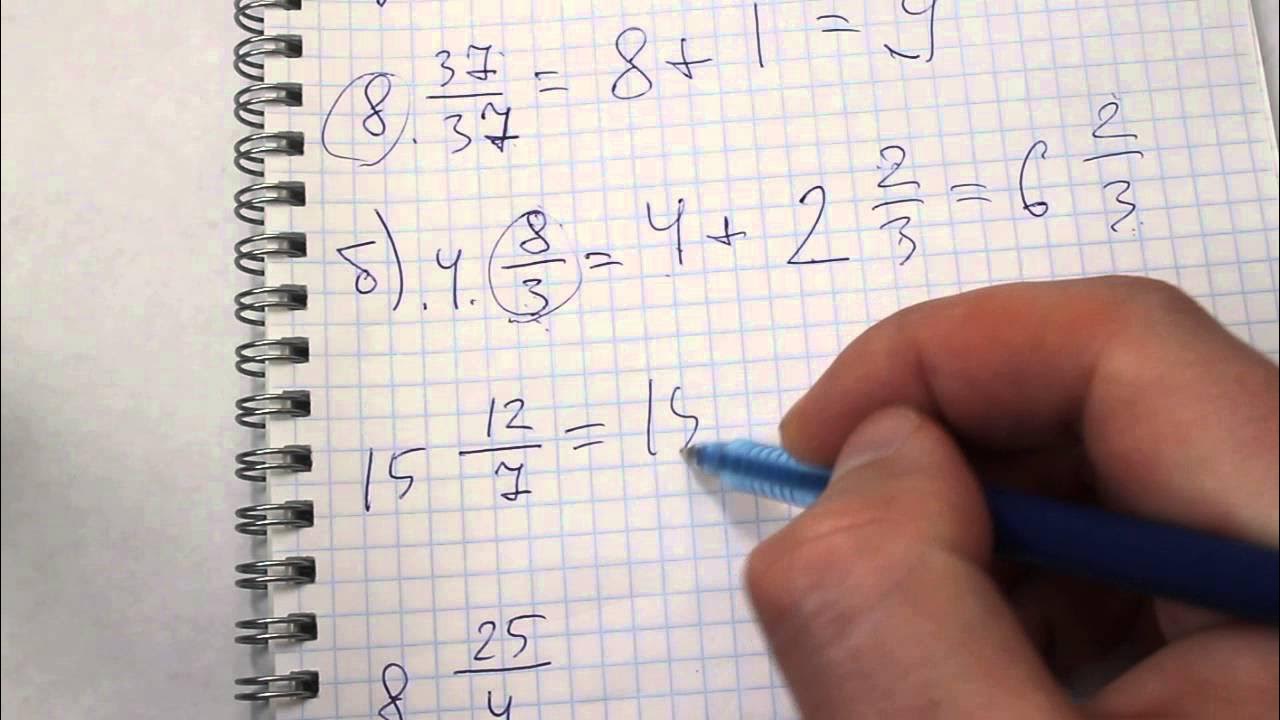 8 . 37/37 = 8 + 1 = 9
б) . 4 . 8/3 = 4 + 2 2/3 = 6 2/3
15 12/7 = 15
8 25/4